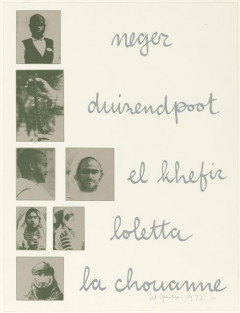 neger
duizendpoot
el khefir
loletta
la chouanne
1977